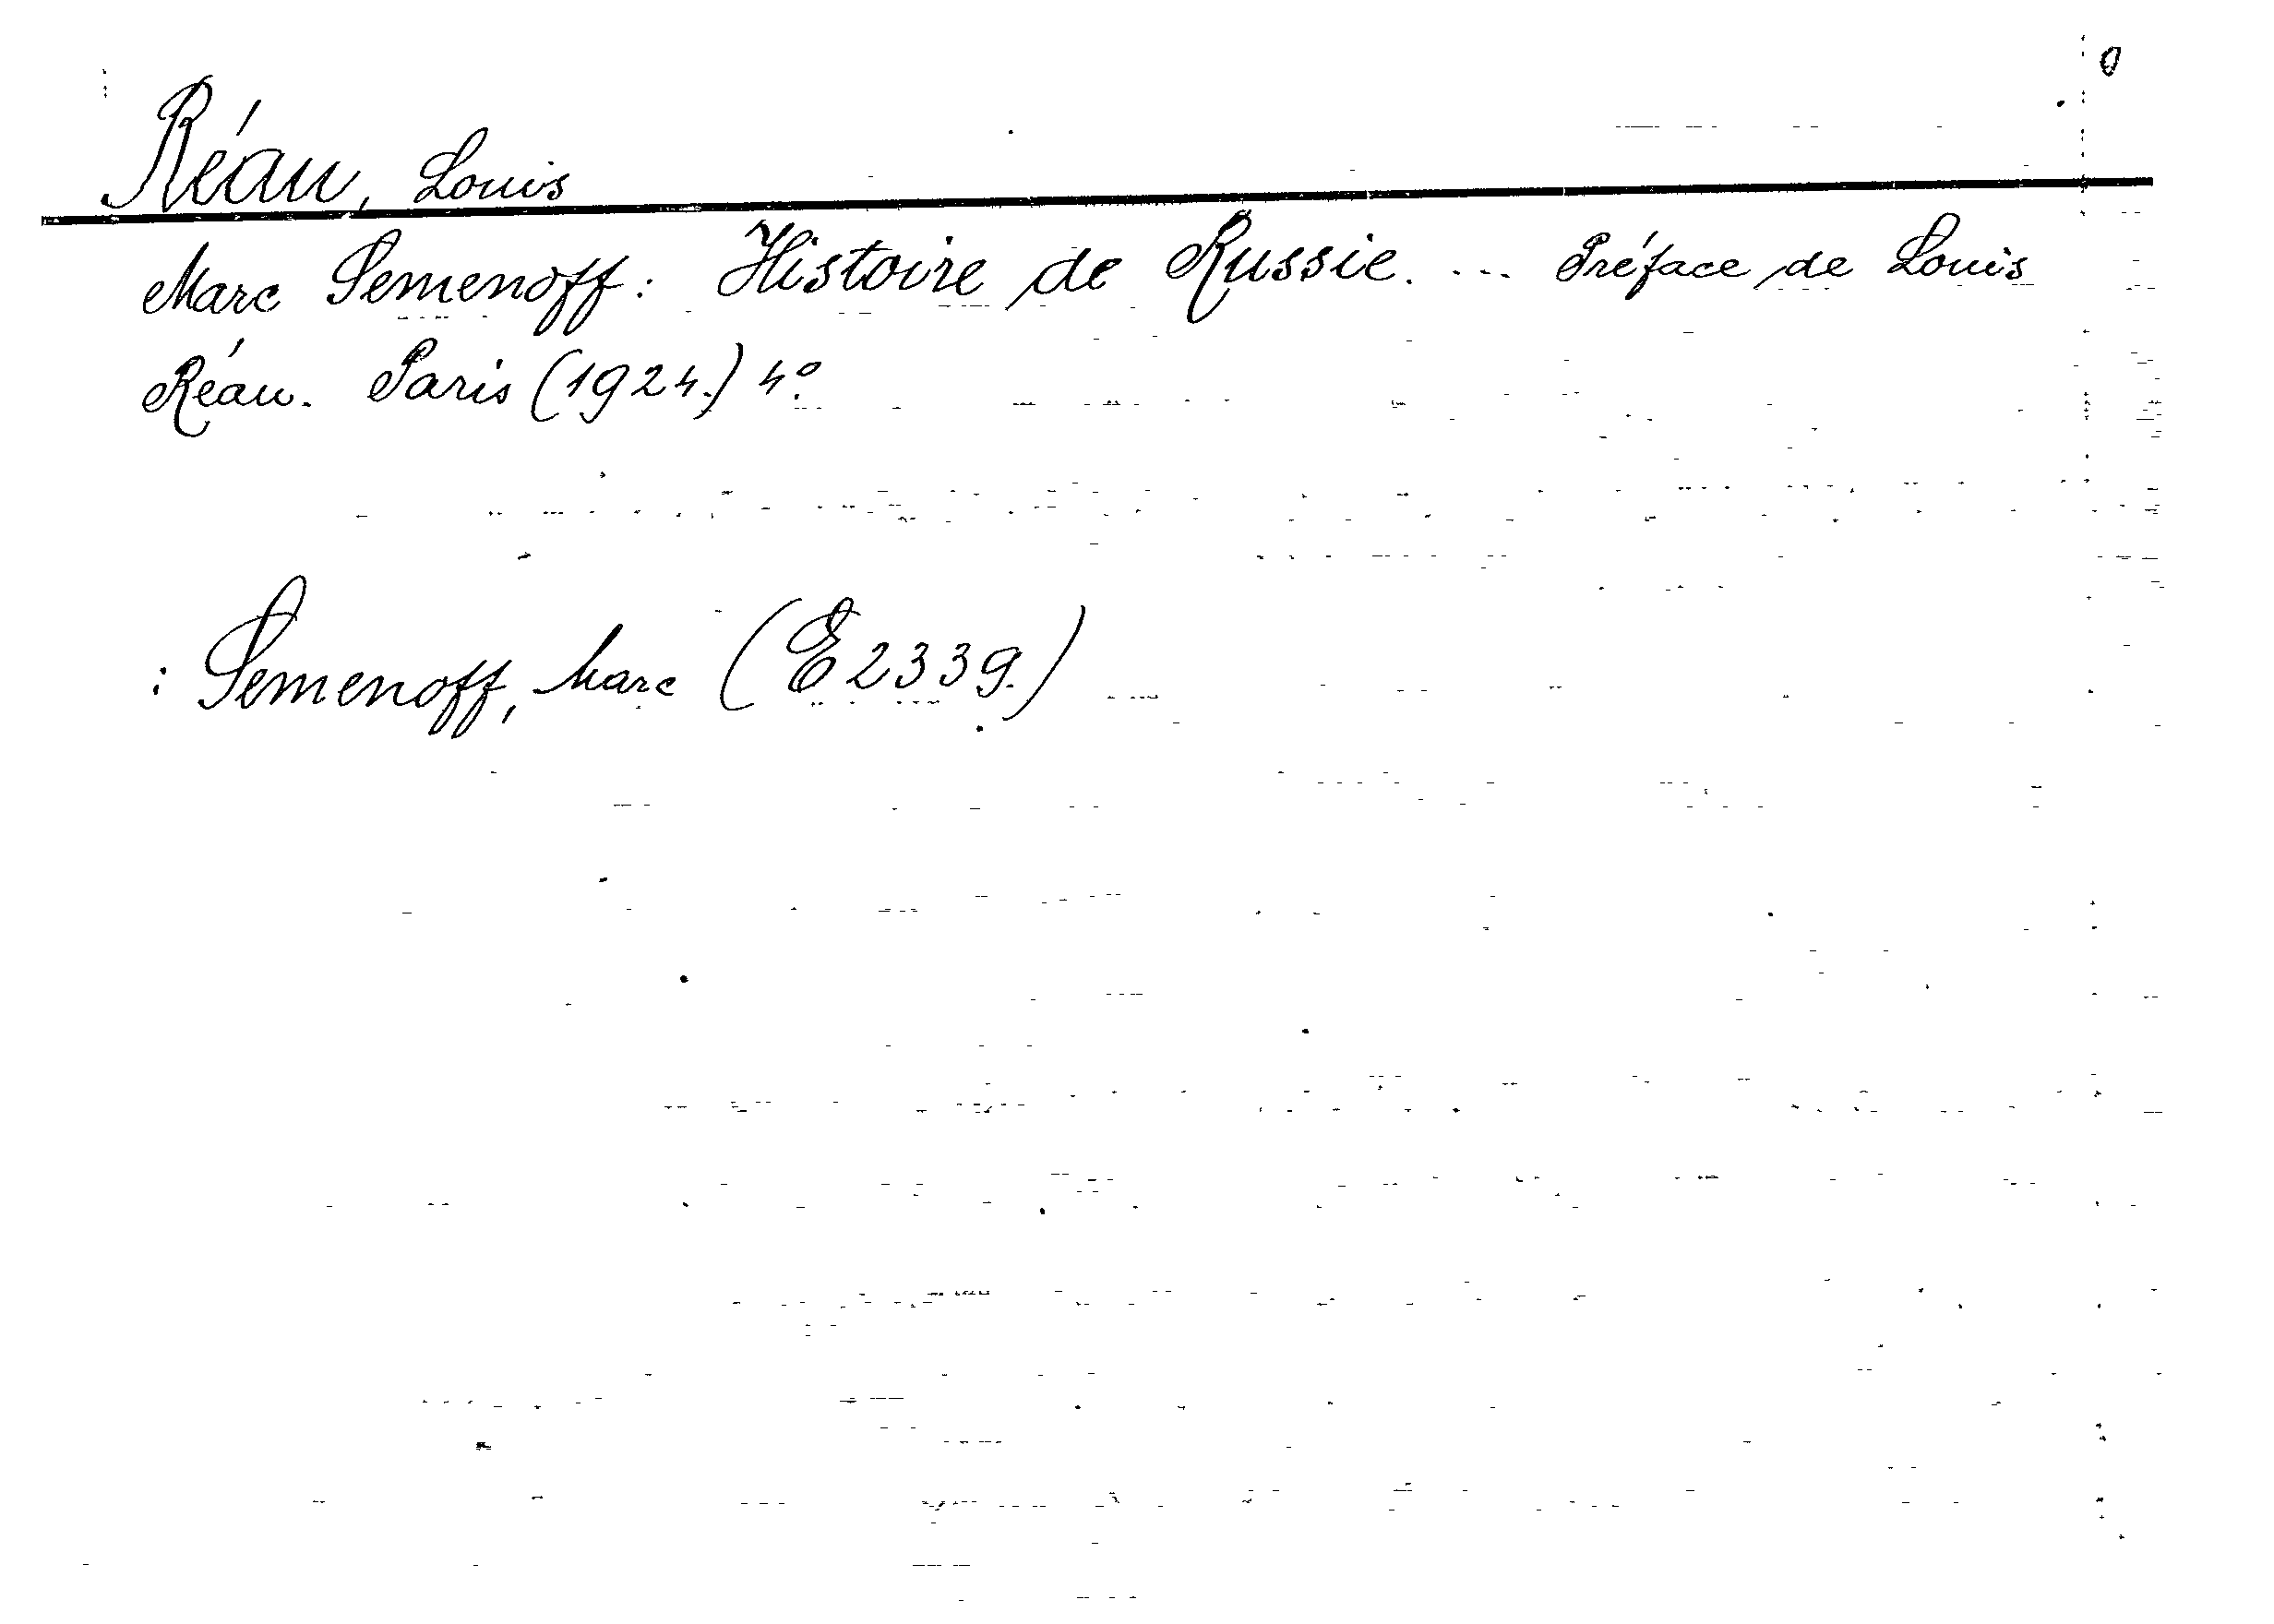 Réau, Louis
Marc Semenoff: Histoire de Russie. ... Préface de Louis
Réau. Paris (1924.) 4°.
: Semenoff, Marc (E 2339.)